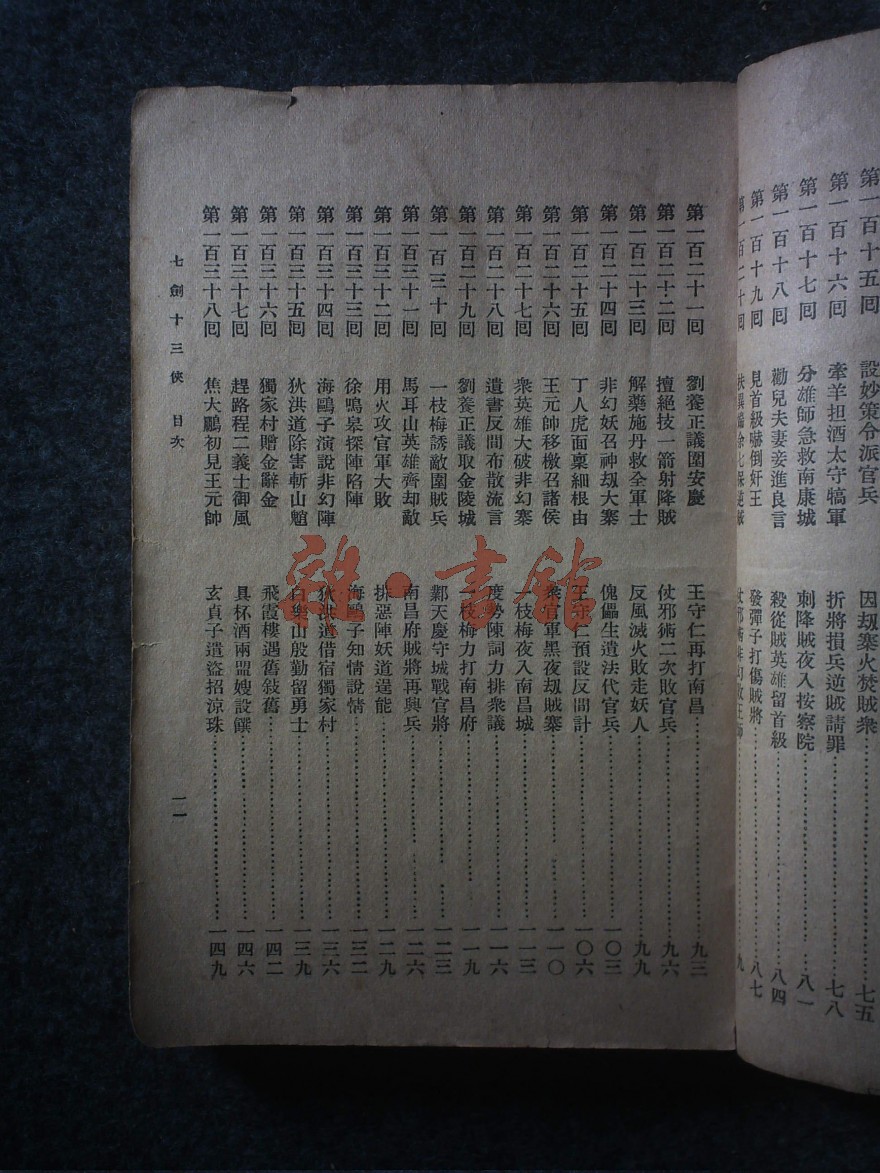 第一百十五回 設妙策令派官兵 因刧寨火焚賊衆 七五
第一百十六回 牽羊担酒太守犒軍 折將損兵逆賊請罪 七八
第一百十七回 分雄師急救南康城 刺降賊夜入按察院 八一
第一百十八回 勸兒夫妻妾進良言 殺從賊英雄留首級 八四
第一百十九回 見首級嚇倒奸王 發彈子打傷賊將 八七
第一百二十回
第一百二十一回 劉養正議圍安慶 王守仁再打南昌 九三
第一百二十二回 擅絕技一箭射降賊 仗邪術二次敗官兵 九六
第一百二十三回 解藥施丹救全軍士 反風滅火敗走妖人 九九
第一百二十四回 非幻妖召神刼大寨 傀儡生遺法代官兵 一〇三
第一百二十五回 丁人虎面稟細根由 王守仁預設反間計 一〇六
第一百二十六回 王元帥移檄召諸侯 衆官軍黑夜刼賊寨 一一〇
第一百二十七回 衆英雄大破非幻寨 一枝梅夜入南昌城 一一三
第一百二十八回 遺書反間布散流言 度勢陳詞力排衆議 一一六
第一百二十九回 劉養正議取金陵城 一枝梅力打南昌府 一一九
第一百三十回 一枝梅誘敵圍賊兵 鄴天慶守城戰官將 一二三
第一百三十一回 馬耳山英雄齊却敵 南昌府賊將再興兵 一二六
第一百三十二回 用火攻官軍大敗 排惡陣妖道逞能 一二九
第一百三十三回 徐鳴皋探陣陷陣 海鷗子知情說情 一三二
第一百三十四回 海鷗子演說非幻陣 狄洪道借宿獨家村 一三六
第一百三十五回 狄洪道除害斬山魈 白樂山殷勤留勇士 一三九
第一百三十六回 獨家村贈金辭金 飛霞樓遇舊敍舊 一四二
第一百三十七回 趕路程二義士御風 具杯酒兩盟嫂設饌 一四六
第一百三十八回 焦大鵬初見王元帥 玄貞子遣盜招涼珠 一四九
七劍十三俠 目次 一一
雜·書館